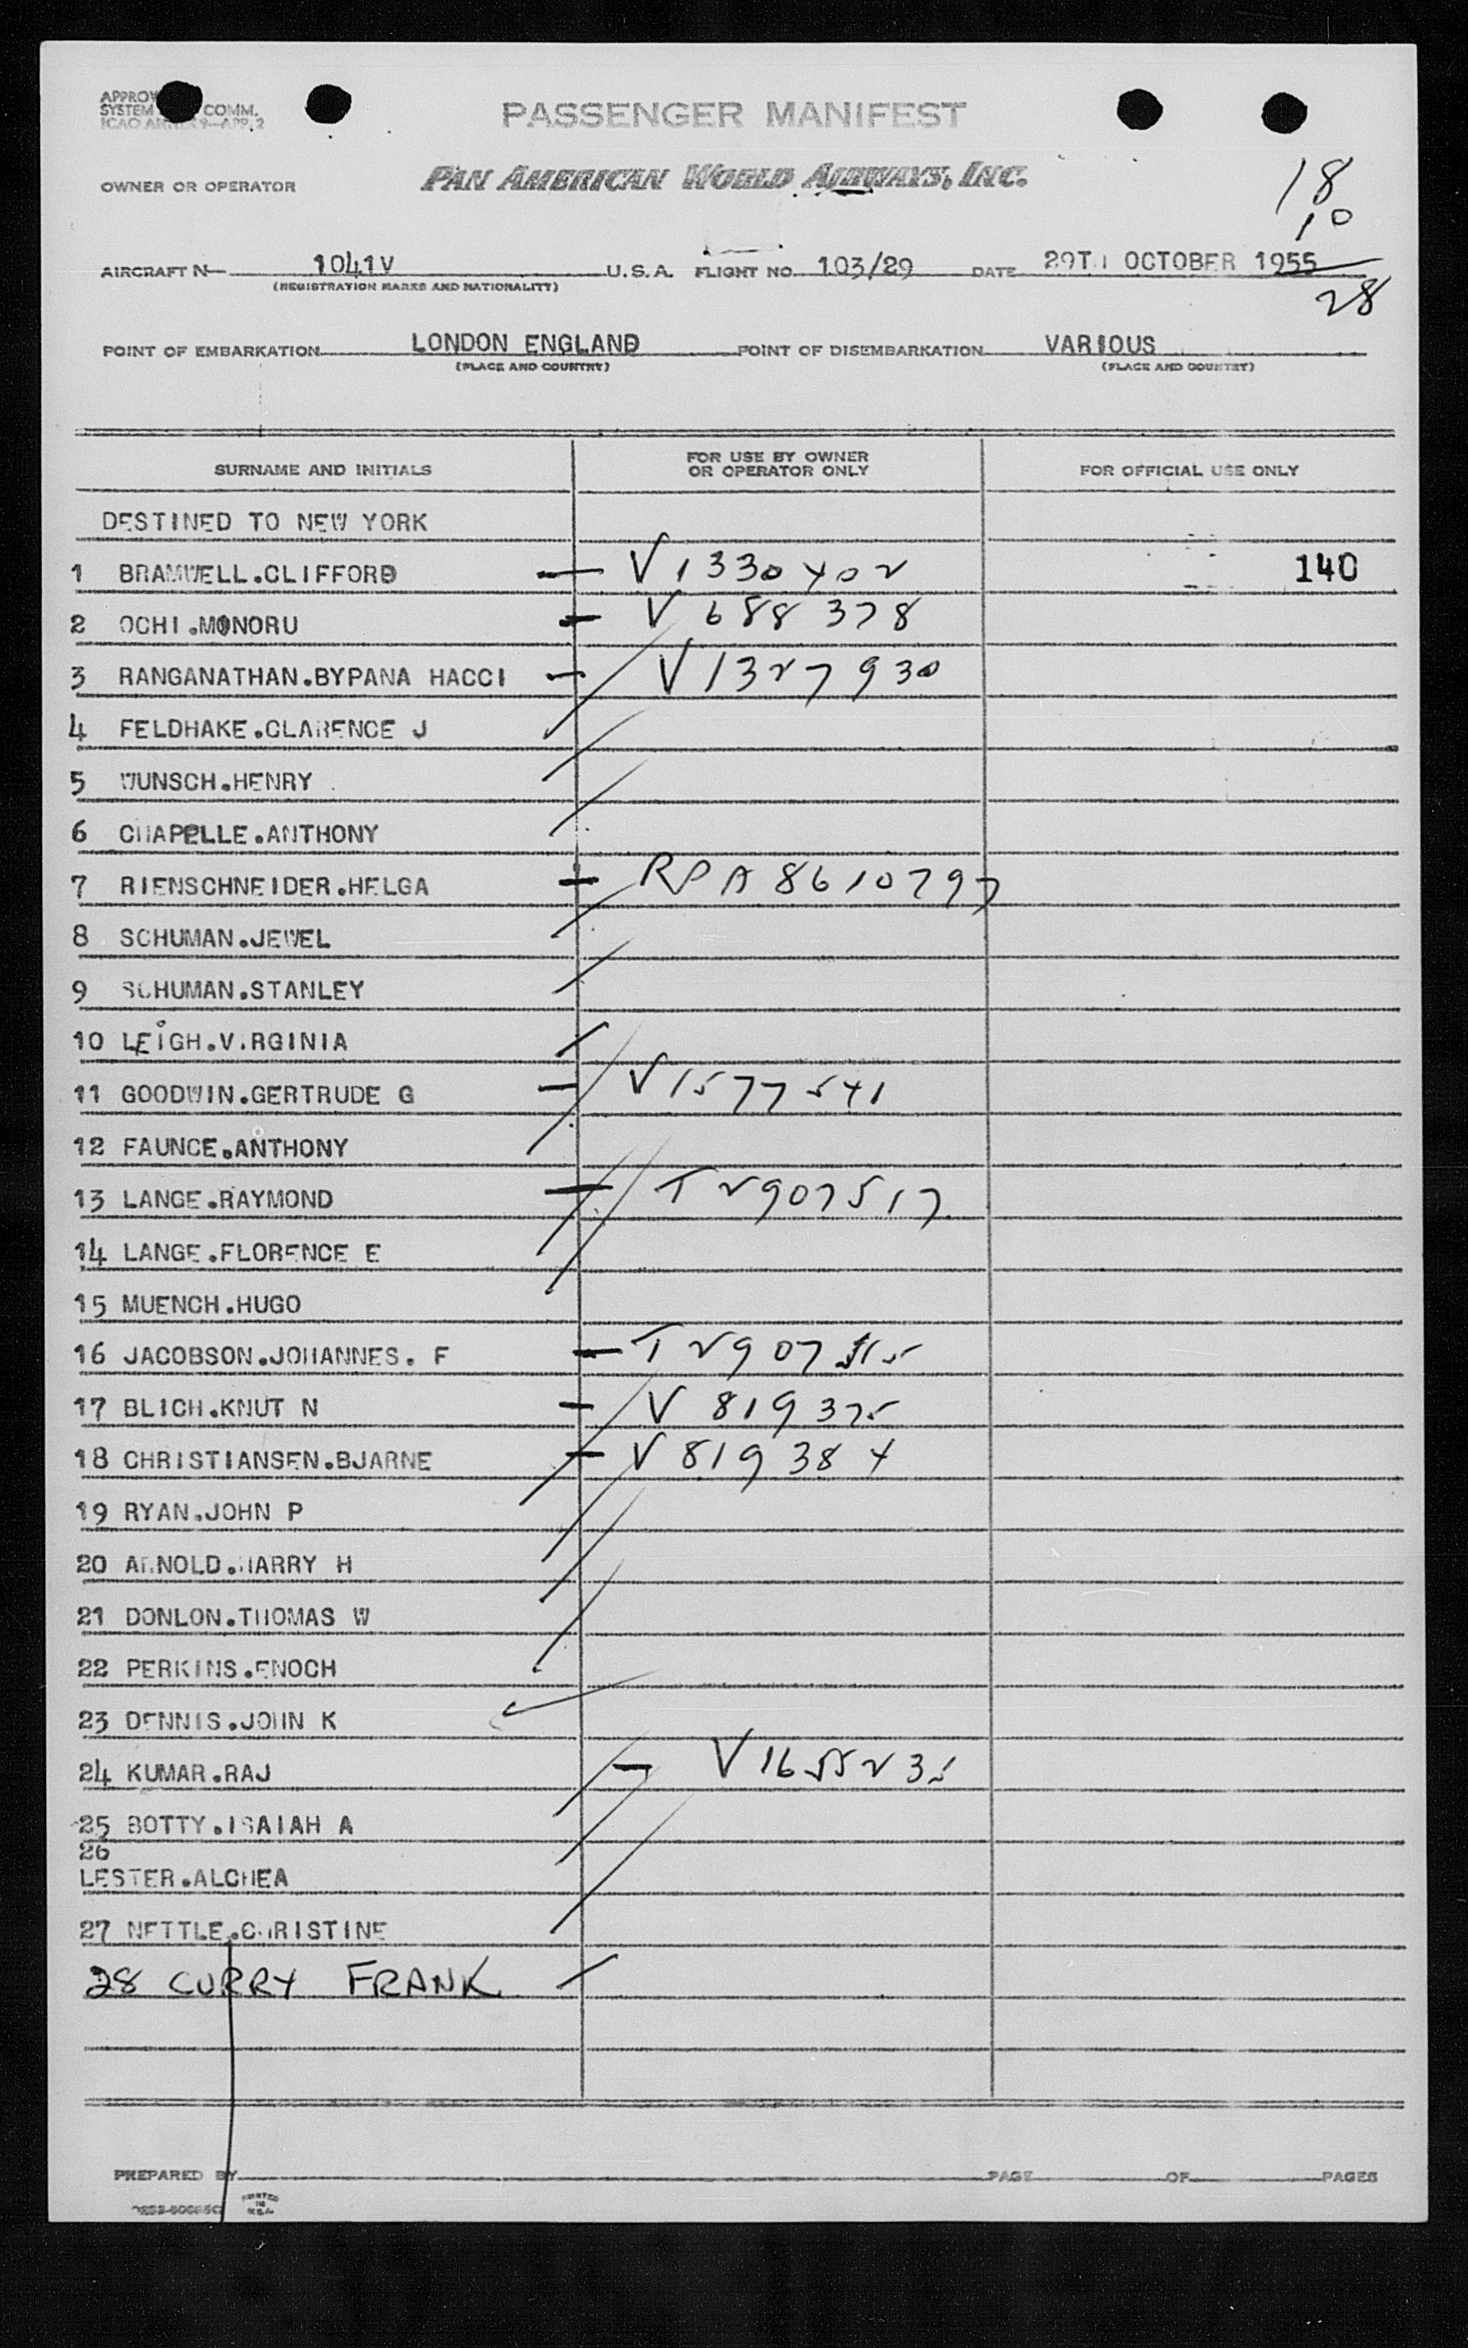 PASSENGER MANIFEST
SYSTEM COMM.
OWNER OR OPERATOR PAN AMERICAN WORLD AIRWAYS, INC.
18
10
28
AIRCRAFT N 1041V U.S.A. FLIGHT NO. 103/29 DATE 29TH OCTOBER 1955
(REGISTRATION MARKS AND NATIONALITY)
POINT OF EMBARKATION LONDON ENGLAND POINT OF DISEMBARKATION VARIOUS
(PLACE AND COUNTRY) (PLACE AND COUNTRY)
SURNAME AND INITIALS FOR USE BY OWNER OR OPERATOR ONLY FOR OFFICIAL USE ONLY
DESTINED TO NEW YORK
1 BRAMWELL.CLIFFORD — V1330402 140
2 OCHI.MONORU — V 688378
3 RANGANATHAN.BYPANA HACCI — V1327930
4 FELDHAKE.CLARENCE J
5 WUNSCH.HENRY
6 CHAPELLE.ANTHONY
7 RIENSCHNEIDER.HELGA — RPA8610797
8 SCHUMAN.JEWEL
9 SCHUMAN.STANLEY
10 LEIGH.VIRGINIA
11 GOODWIN.GERTRUDE G — V1577541
12 FAUNCE.ANTHONY
13 LANGE.RAYMOND — T2907517
14 LANGE.FLORENCE E
15 MUENCH.HUGO
16 JACOBSON.JOHANNES. F —
17 BLICH.KNUT N — V 819375
18 CHRISTIANSEN.BJARNE — V 819384
19 RYAN.JOHN P
20 ARNOLD.HARRY H
21 DONLON.THOMAS W
22 PERKINS.ENOCH
23 DENNIS.JOHN K
24 KUMAR.RAJ — V1655235
25 BOTTY.ISAIAH A
26
LESTER.ALCHEA
27 NETTLE.CHRISTINE
28 CURRY FRANK
PREPARED BY PAGE OF PAGES
PRINTED
IN
U.S.A.